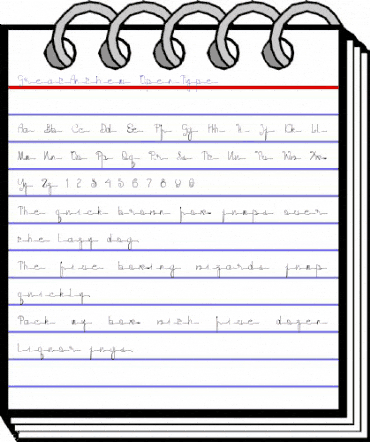 GreatArchem OpenType
Aa Bb Cc Dd Ee Ff Gg Hh Ii Jj Kk Ll
Mm Nn Oo Pp Qq Rr Ss Tt Uu Vv Ww Xx
Yy Zz 1 2 3 4 5 6 7 8 9 0
The quick brown fox jumps over
the lazy dog
The five boxing wizards jump
quickly
Pack my box with five dozen
liquor jugs